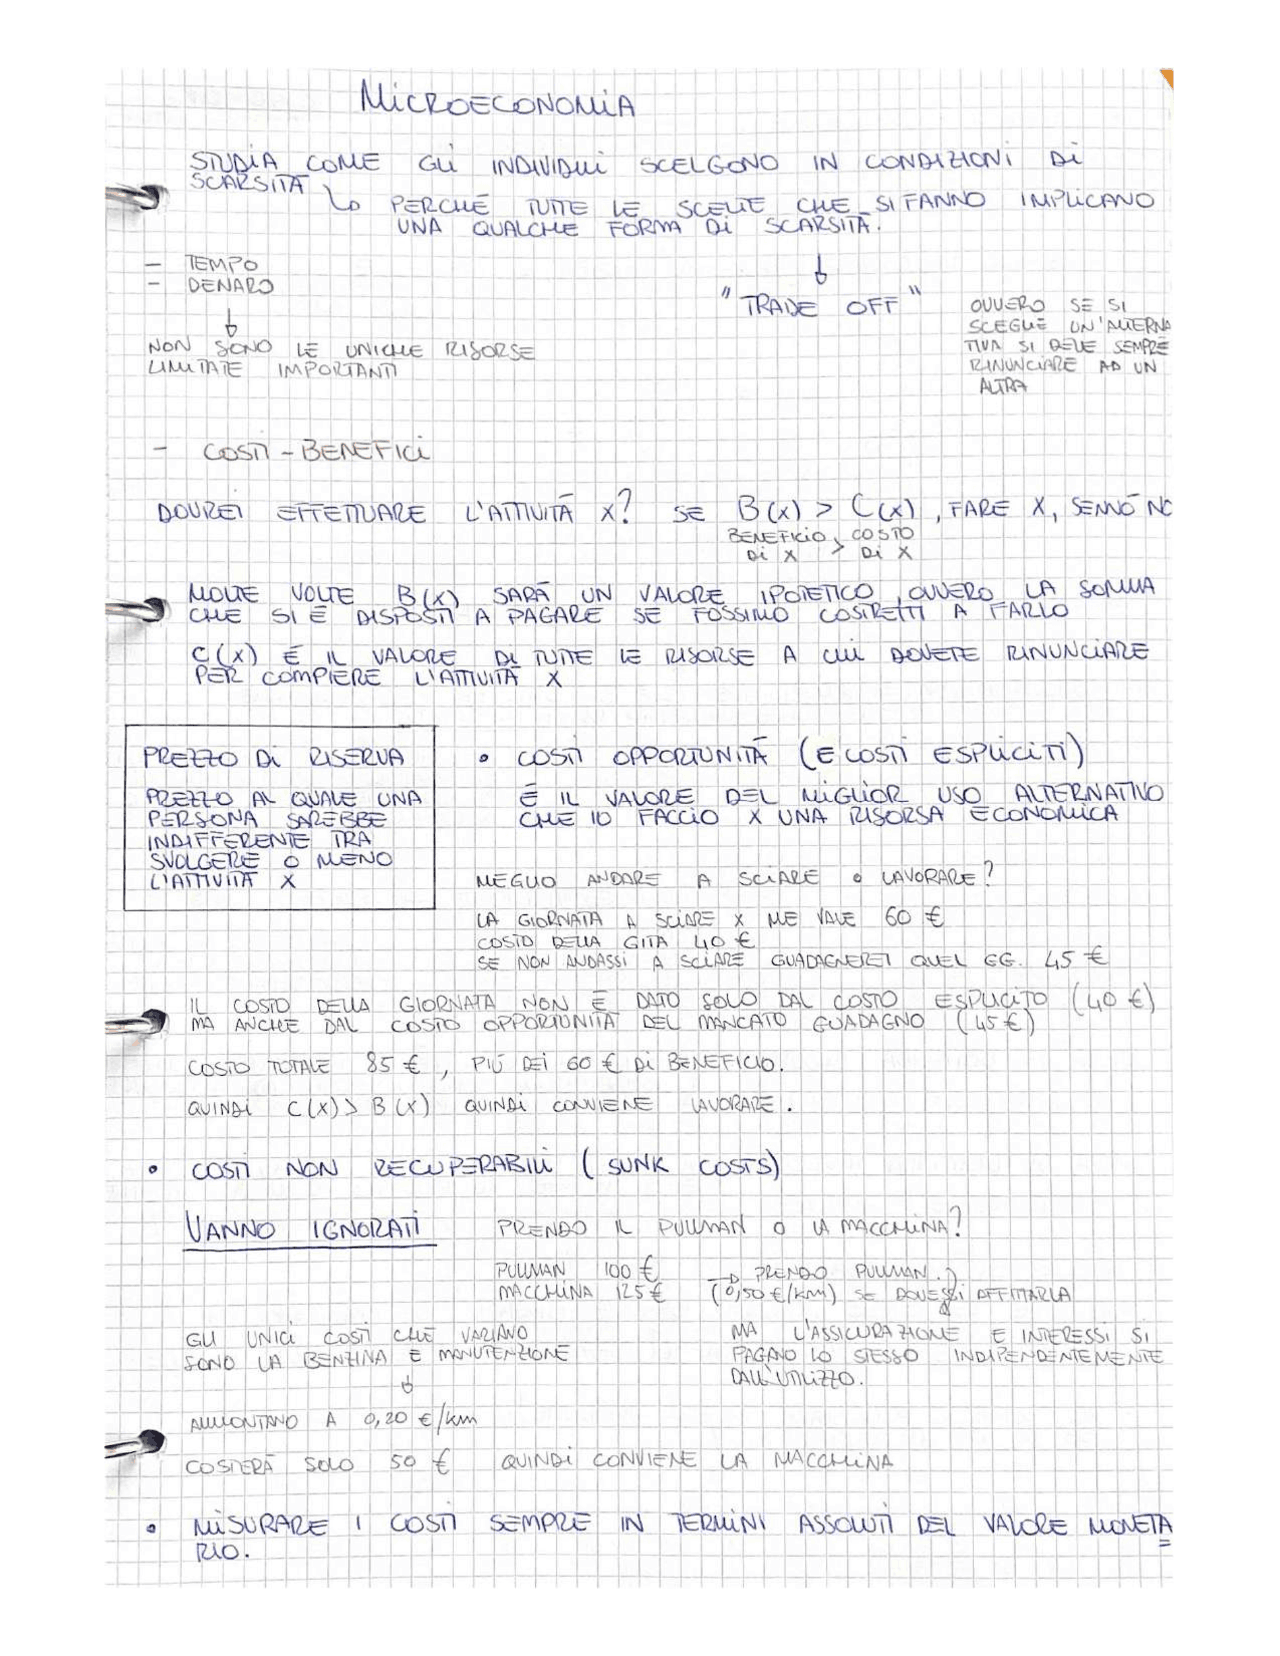 MICROECONOMIA
STUDIA COME GLI INDIVIDUI SCELGONO IN CONDIZIONI DI
SCARSITÀ
PERCHÉ TUTTE LE SCELTE CHE SI FANNO IMPLICANO
UNA QUALCHE FORMA DI SCARSITÀ.
- TEMPO
- DENARO
NON SONO LE UNICHE RISORSE
LIMITATE IMPORTANTI
"TRADE OFF"
OVVERO SE SI
SCEGLIE UN'ALTERNA
TIVA SI DEVE SEMPRE
RINUNCIARE AD UN
ALTRA
- COSTI - BENEFICI
DOVREI EFFETTUARE L'ATTIVITÀ X? SE B(X) > C(X), FARE X, SENNÒ NO
BENEFICIO DI X > COSTO DI X
MOLTE VOLTE B(X) SARÀ UN VALORE IPOTETICO, OVVERO LA SOMMA
CHE SI È DISPOSTI A PAGARE SE FOSSIMO COSTRETTI A FARLO
C(X) È IL VALORE DI TUTTE LE RISORSE A CUI DOVETE RINUNCIARE
PER COMPIERE L'ATTIVITÀ X
PREZZO DI RISERVA
PREZZO AL QUALE UNA
PERSONA SAREBBE
INDIFFERENTE TRA
SVOLGERE O MENO
L'ATTIVITÀ X
• COSTI OPPORTUNITÀ (E COSTI ESPLICITI)
È IL VALORE DEL MIGLIOR USO ALTERNATIVO
CHE IO FACCIO X UNA RISORSA ECONOMICA
MEGLIO ANDARE A SCIARE O LAVORARE?
LA GIORNATA A SCIARE X ME VALE 60 €
COSTO DELLA GITA 40 €
SE NON ANDASSI A SCIARE GUADAGNEREI QUEL GG. 45 €
IL COSTO DELLA GIORNATA NON È DATO SOLO DAL COSTO ESPLICITO (40 €)
MA ANCHE DAL COSTO OPPORTUNITÀ DEL MANCATO GUADAGNO (45 €)
COSTO TOTALE 85 €, PIÙ DEI 60 € DI BENEFICIO.
QUINDI C(X) > B(X) QUINDI CONVIENE LAVORARE.
• COSTI NON RECUPERABILI (SUNK COSTS)
VANNO IGNORATI
PRENDO IL PULLMAN O LA MACCHINA?
PULLMAN 100 €
PRENDO PULLMAN.
MACCHINA 125 €
(0,50 €/km) SE DOVESSI AFFITTARLA
GLI UNICI COSTI CHE VARIANO
SONO LA BENZINA E MANUTENZIONE
MA L'ASSICURAZIONE E INTERESSI SI
PAGANO LO STESSO INDIPENDENTEMENTE
DALL'UTILIZZO.
AMMONTANO A 0,20 €/km
COSTERÀ SOLO 50 € QUINDI CONVIENE LA MACCHINA
• MISURARE I COSTI SEMPRE IN TERMINI ASSOLUTI DEL VALORE MONETA
RIO.